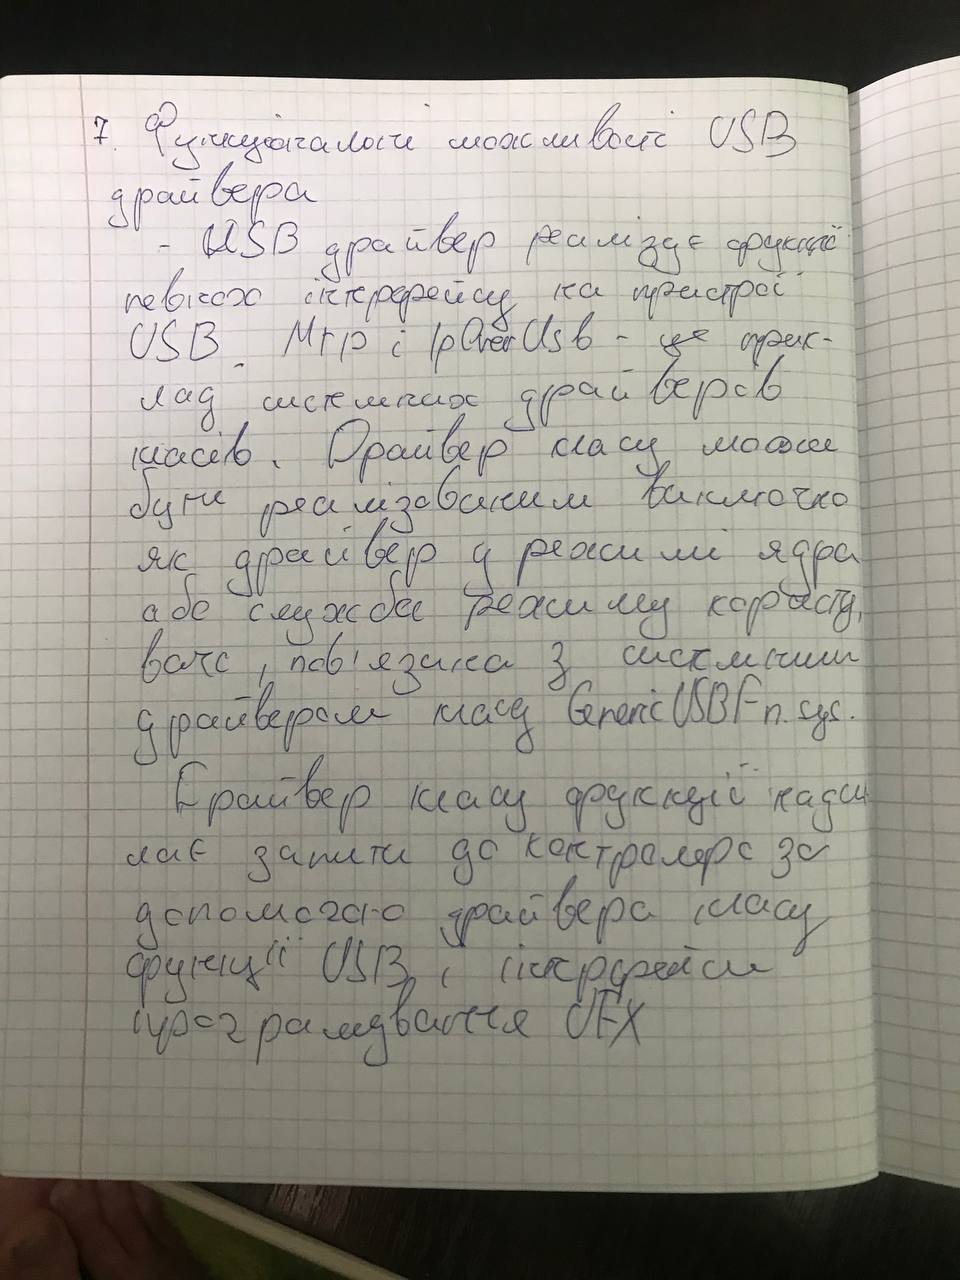 7. Функціональні можливості USB
драйвера
- USB драйвер реалізує функції
певного інтерфейсу на пристрої
USB. Mtp і IpOverUsb - це прик-
лад системних драйверів
класів. Драйвер класу може
бути реалізованим виключно
як драйвер у режимі ядра
або служба режиму користу,
вача, пов'язана з системним
драйвером класу GenericUSBFn.sys.
Драйвер класу функції надси
лає запити до контролера за
допомогою драйвера класу
функції USB, і інтерфейси
програмування UFX